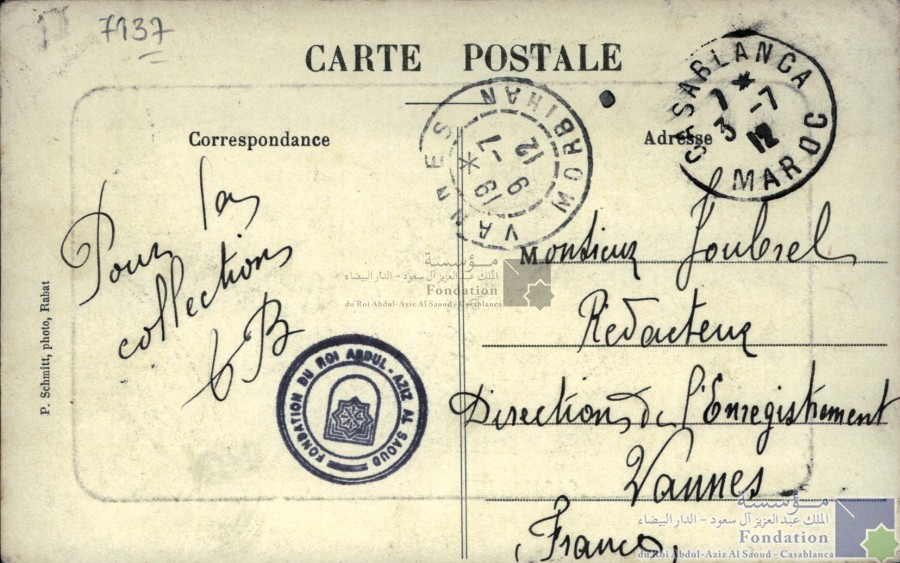 7137
CARTE POSTALE
Correspondance
Adresse
CASABLANCA
7 -7
3 12
MAROC
VANNES MORBIHAN
19
9 -7
12
Pour la
collection
P. Schmitt, photo, Rabat
FONDATION DU ROI ABDUL-AZIZ AL SAOUD
Monsieur Joubrel
Rédacteur
Direction de l'Enregistrement
Vannes
France
مؤسسة
الملك عبد العزيز آل سعود - الدار البيضاء
Fondation
du Roi Abdul-Aziz Al Saoud - Casablanca
مؤسسة
الملك عبد العزيز آل سعود - الدار البيضاء
Fondation
du Roi Abdul-Aziz Al Saoud - Casablanca